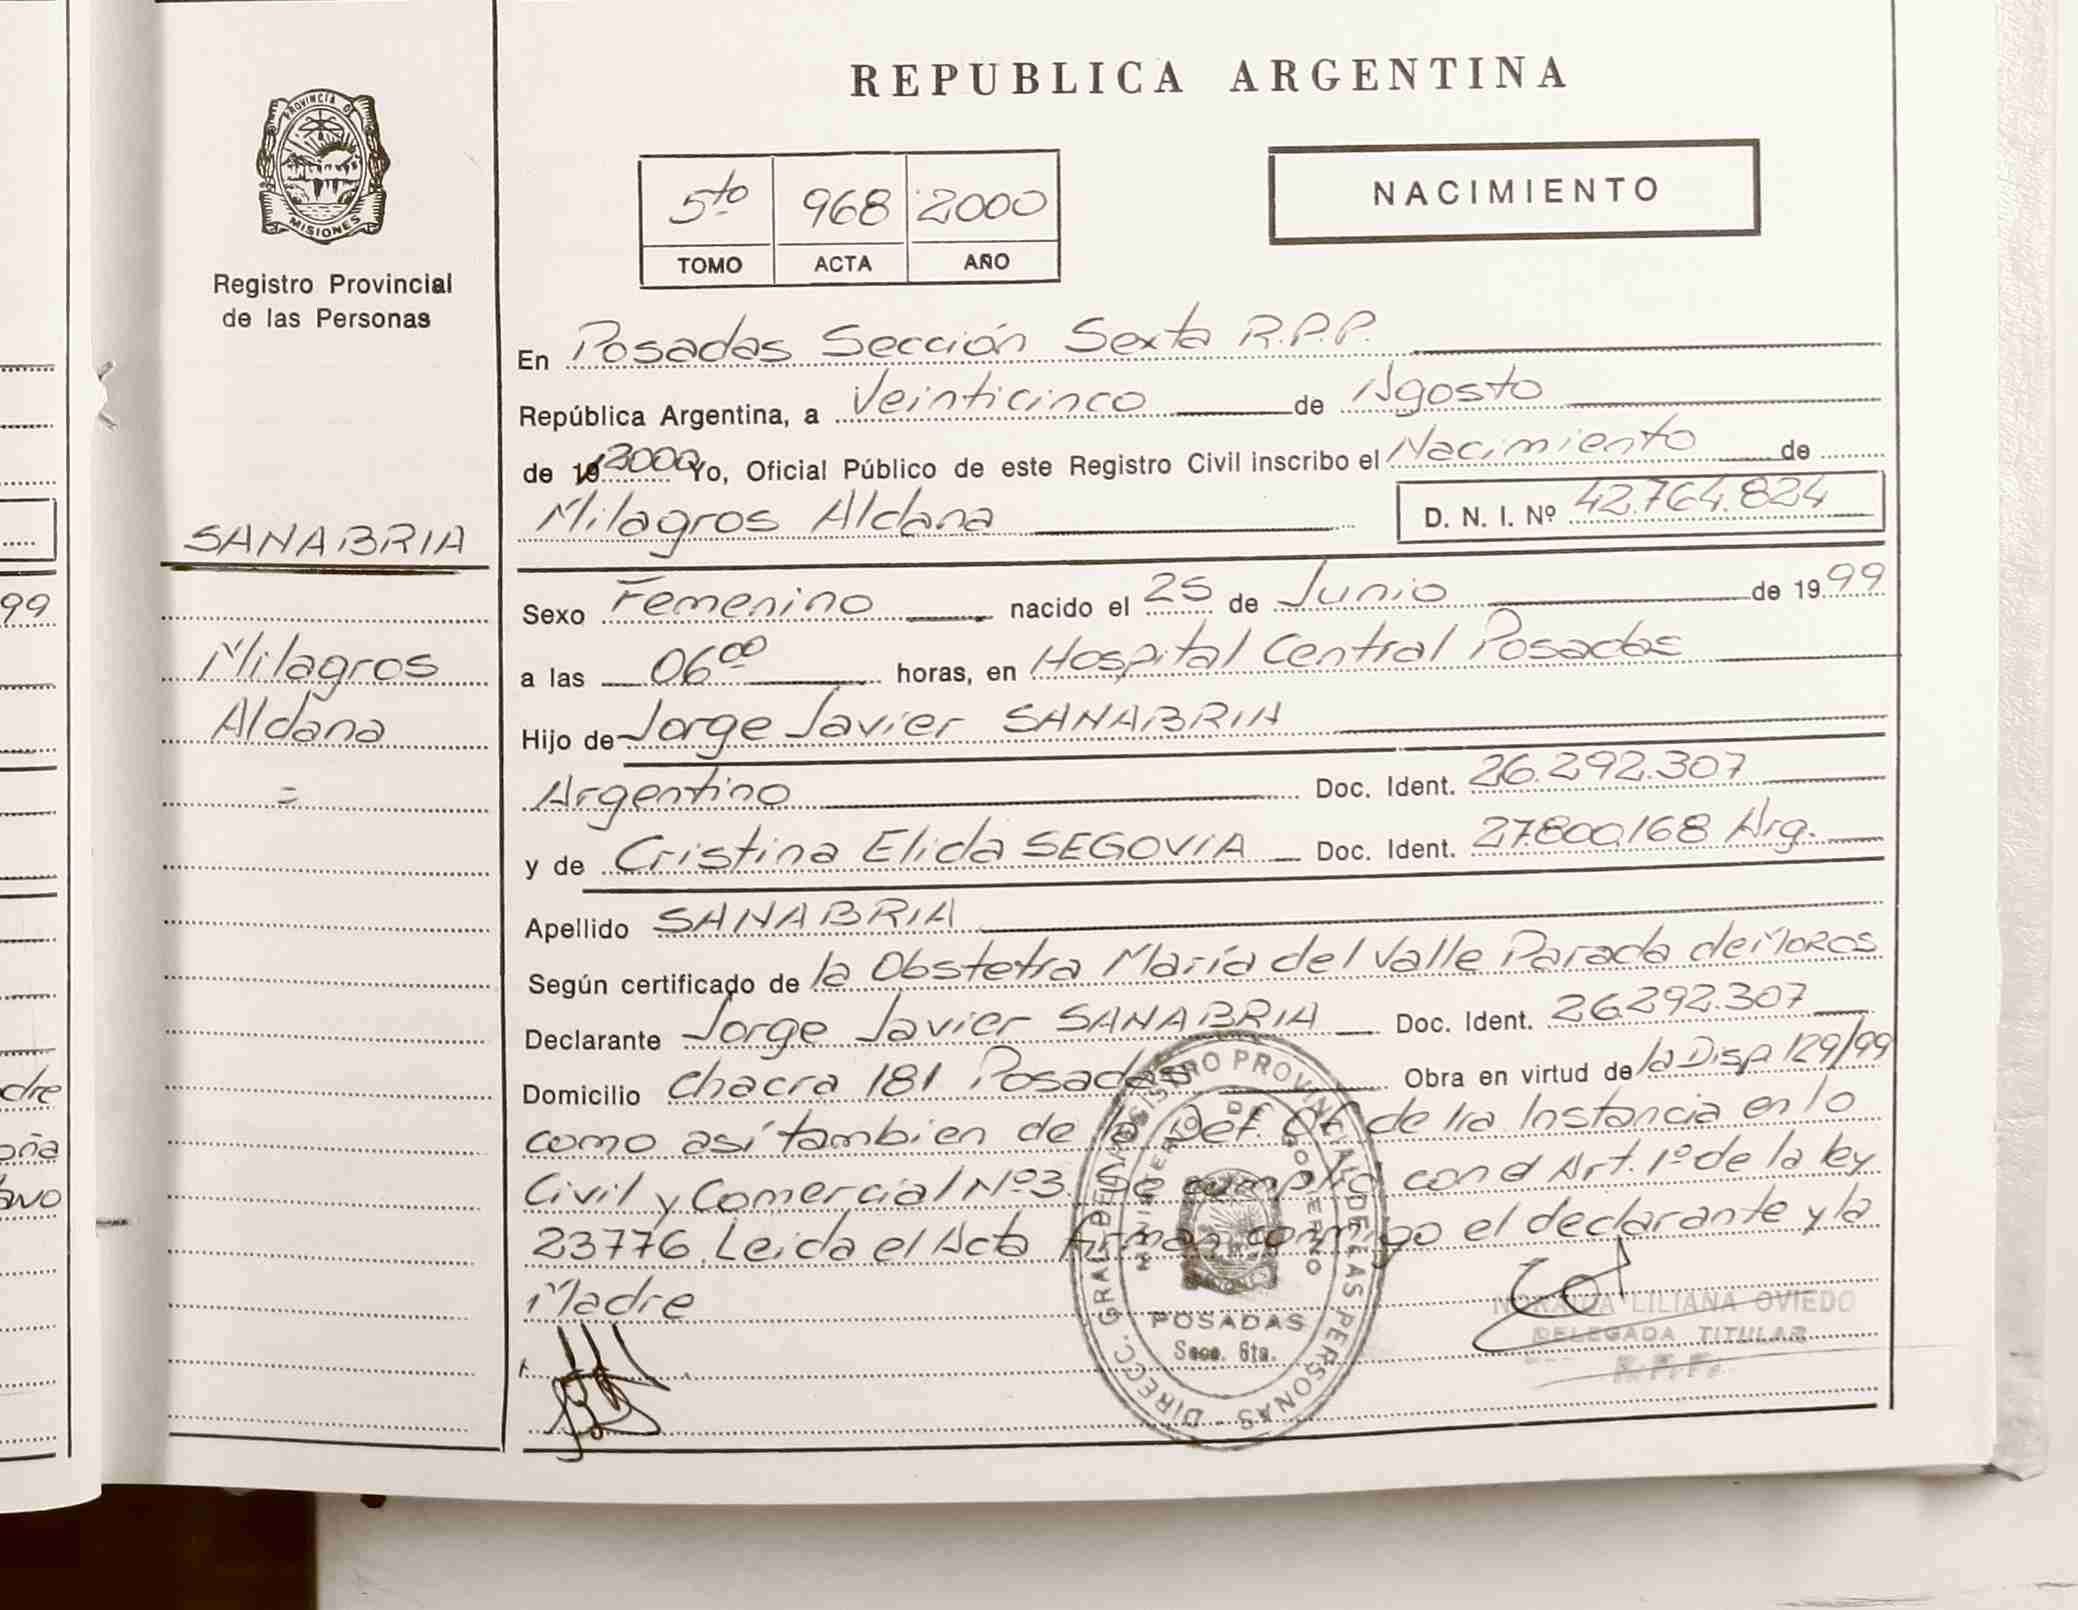 REPUBLICA ARGENTINA
PROVINCIA DE
MISIONES
Registro Provincial
de las Personas
5to 968 2000
TOMO ACTA AÑO
NACIMIENTO
En Posadas Sección Sexta R.P.P.
República Argentina, a Veinticinco de Agosto
de 19 2000 Yo, Oficial Público de este Registro Civil inscribo el Nacimiento de
Milagros Aldana D. N. I. Nº 42.764.824
SANABRIA
Milagros
Aldana
=
Sexo Femenino nacido el 25 de Junio de 1999
a las 06 00 horas, en Hospital Central Posadas
Hijo de Jorge Javier SANABRIA
Argentino Doc. Ident. 26.292.307
y de Cristina Elida SEGOVIA Doc. Ident. 27.800.168 Arg.
Apellido SANABRIA
Según certificado de la Obstetra María del Valle Parada de MOROS
Declarante Jorge Javier SANABRIA Doc. Ident. 26.292.307
Domicilio Chacra 181 Posadas Obra en virtud de la Disp 129/99
como así tambien de la Def. Of. de 1ra Instancia en lo
Civil y Comercial Nº3. Se cumplió con el Art. 1º de la ley
23776. Leida el Acta firman conmigo el declarante y la
Madre
DIRECC. GRAL DEL REGISTRO PROVINCIAL DE LAS PERSONAS
MINISTERIO DE GOBIERNO
POSADAS
Secc. 6ta.
LILIANA OVIEDO
DELEGADA TITULAR
99
dre